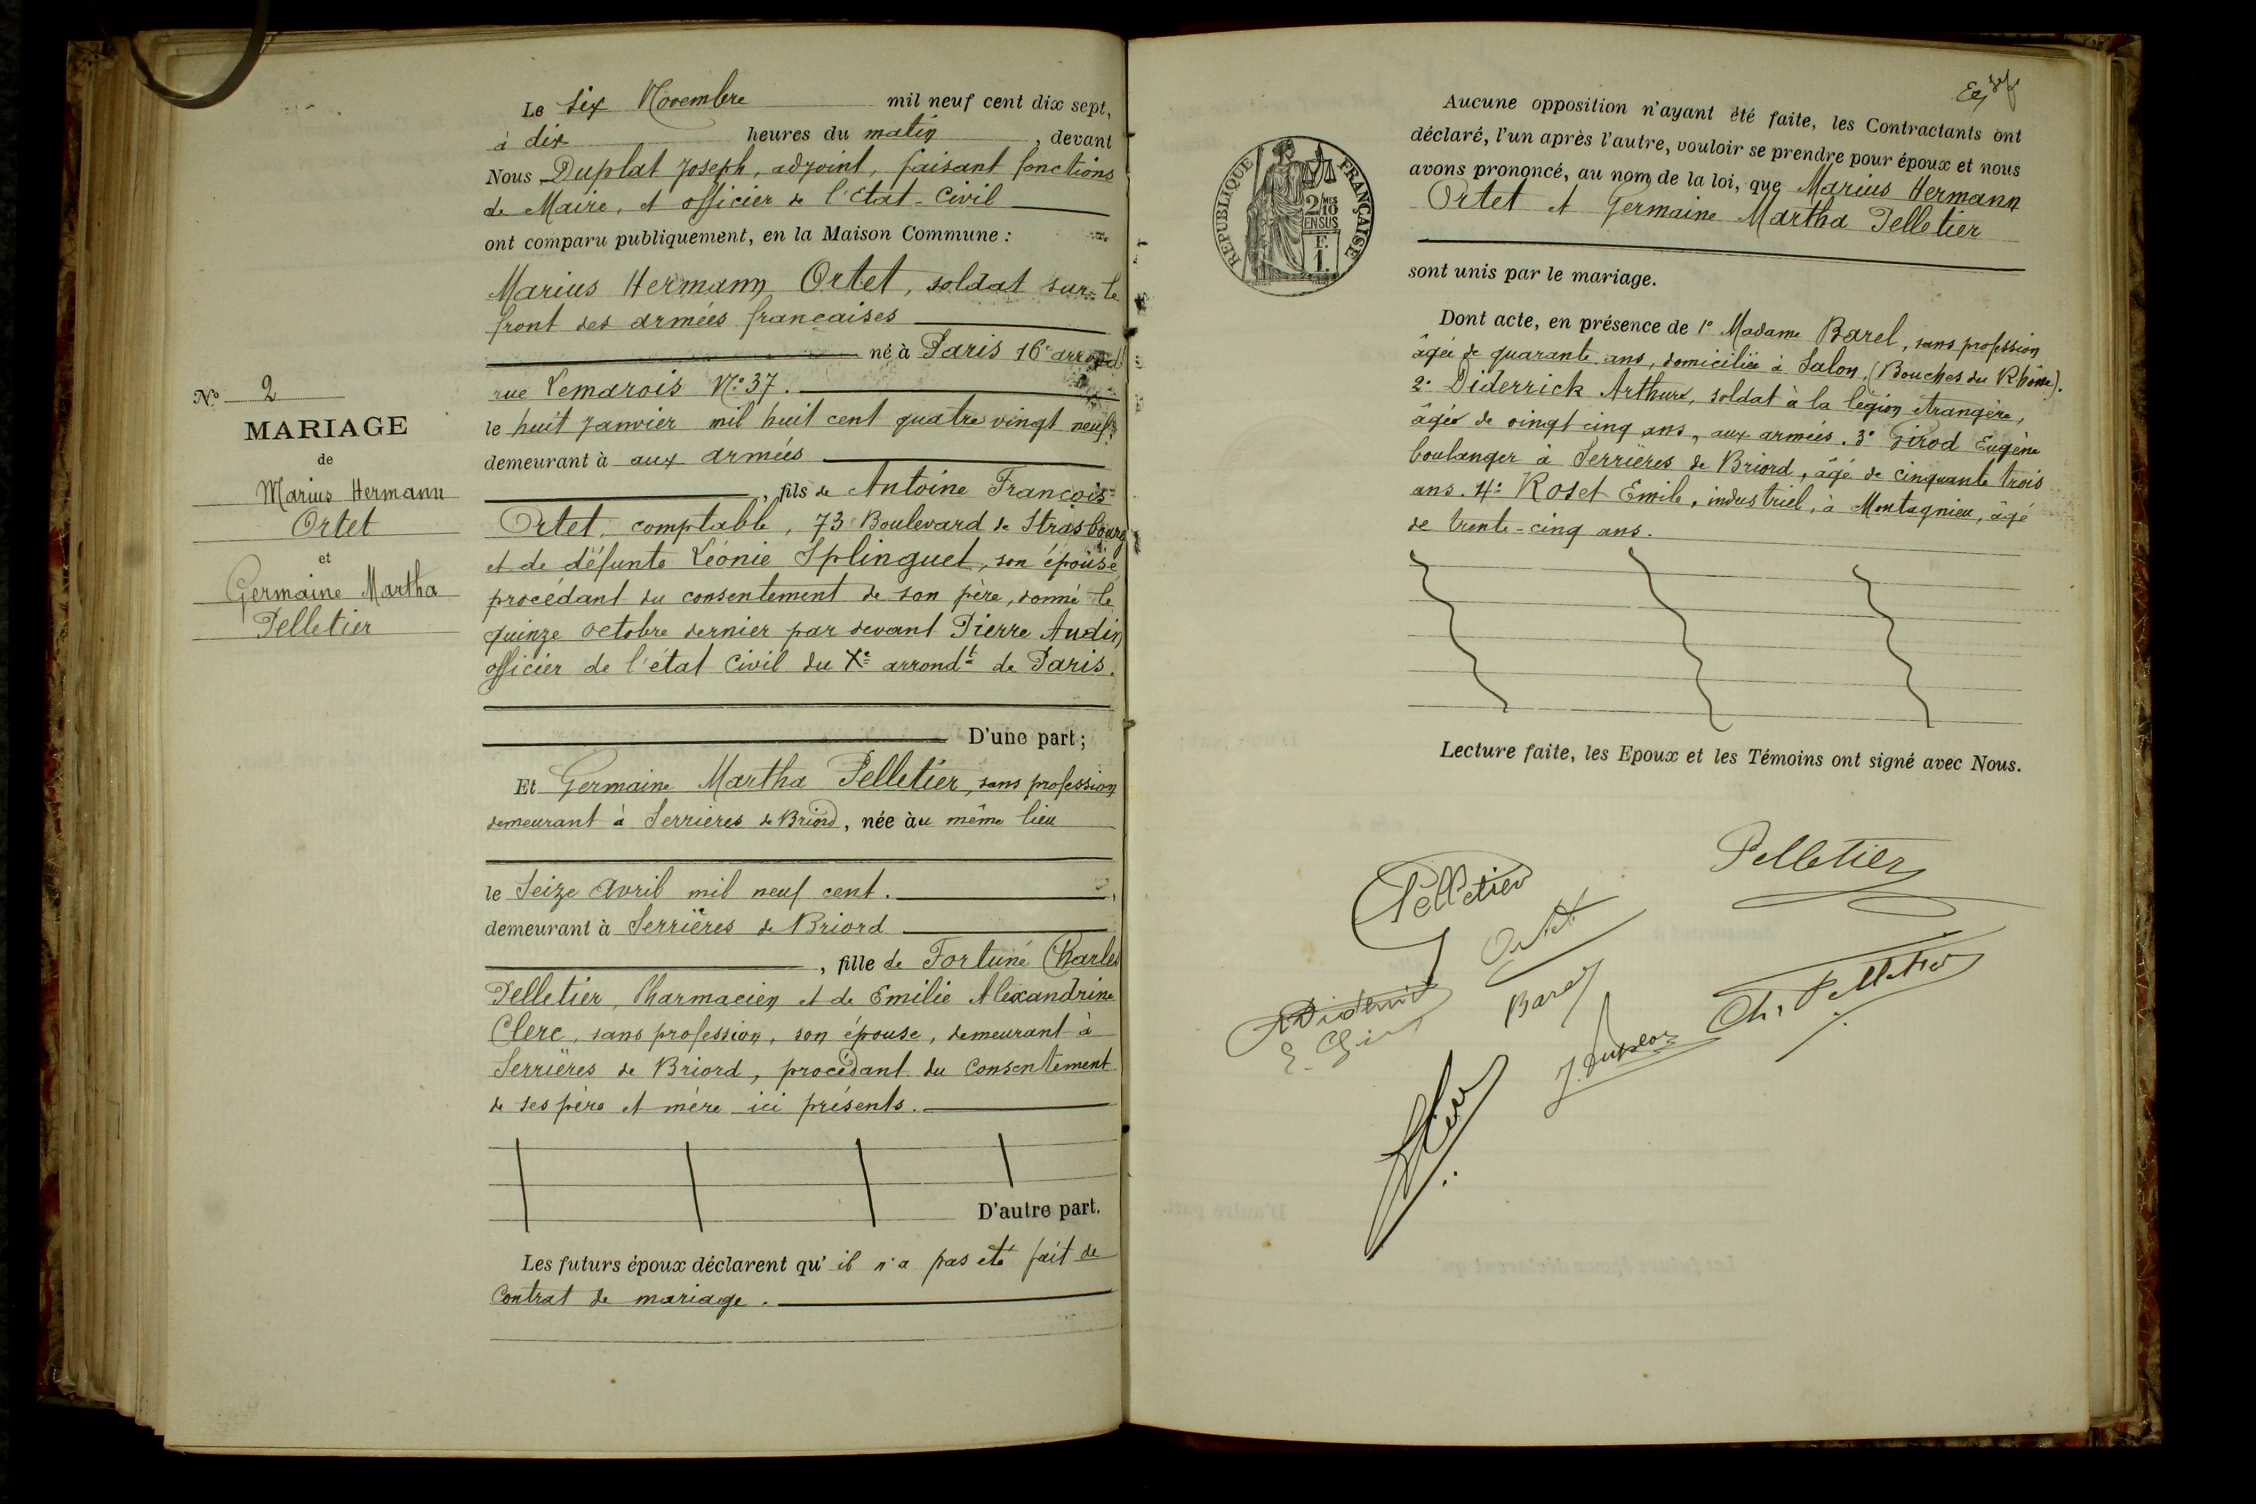 Le six Novembre mil neuf cent dix sept,
à dix heures du matin, devant
Nous Duplat Joseph, adjoint, faisant fonctions
de Maire, et officier de l'Etat-Civil
ont comparu publiquement, en la Maison Commune :
Marius Hermann Ortet, soldat sur le
front des armées françaises
né à Paris 16e arrondt
rue Lemarois No 37.
le huit Janvier mil huit cent quatre vingt neuf,
demeurant à aux armées
, fils de Antoine François
Ortet, comptable, 73 Boulevard de Strasbourg
et de défunte Léonie Splinguet, son épouse
procédant du consentement de son père, donné le
quinze octobre dernier par devant Pierre Audin
officier de l'état Civil du Xe arrondt de Paris.
D'une part ;
Et Germaine Martha Pelletier, sans profession
demeurant à Serrières de Briord, née àu même lieu
le Seize Avril mil neuf cent.
demeurant à Serrières de Briord
, fille de Fortuné Charles
Pelletier, Pharmacien et de Emilie Alexandrine
Clerc, sans profession, son épouse, demeurant à
Serrières de Briord, procédant du Consentement
de ses père et mère ici présents.
D'autre part.
Les futurs époux déclarent qu'il n'a pas été fait de
Contrat de mariage.
No 2
MARIAGE
de
Marius Hermann
Ortet
et
Germaine Martha
Pelletier
REPUBLIQUE FRANÇAISE
2/10 MES
EN SUS
F.
1.
Aucune opposition n'ayant été faite, les Contractants ont
déclaré, l'un après l'autre, vouloir se prendre pour époux et nous
avons prononcé, au nom de la loi, que Marius Hermann
Ortet et Germaine Martha Pelletier
sont unis par le mariage.
Dont acte, en présence de 1o Madame Barel, sans profession
âgée de quarante ans, domiciliée à Salon, (Bouches du Rhône).
2o Diderrick Arthur, soldat à la légion étrangère,
âgée de vingt cinq ans, aux armées. 3o Girod Eugène
boulanger à Serrières de Briord, âgé de cinquante trois
ans. 4o Roset Emile, industriel, à Montagnieu, âgé
de trente-cinq ans.
Lecture faite, les Epoux et les Témoins ont signé avec Nous.
Pelletier
Pelletier
Ortet
Barel
Ch. Pelletier
J. Duplat